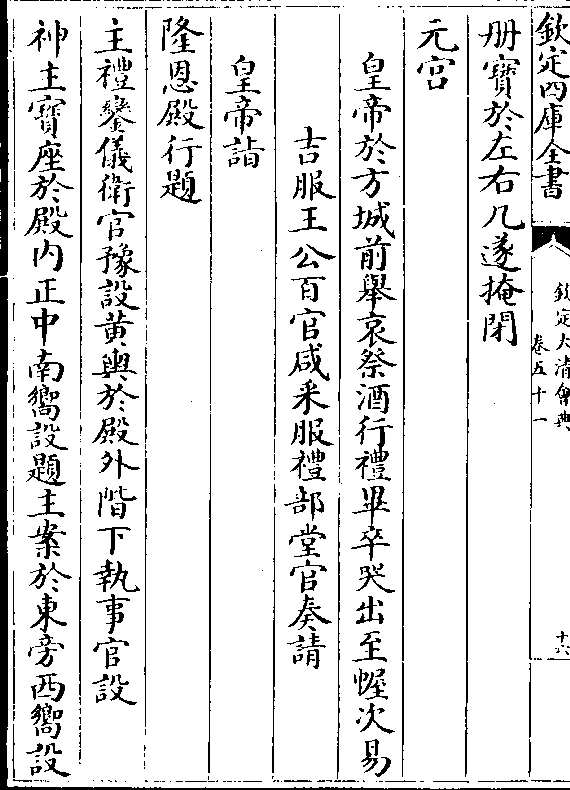 欽定四庫全書
欽定大清會典
卷五十一
十六
册寶於左右几遂掩閉
元宫
皇帝於方城前舉哀祭酒行禮畢卒哭出至幄次易
吉服王公百官咸釆服禮部堂官奏請
皇帝詣
隆恩殿行題
主禮鑾儀衛官豫設黄輿於殿外階下執事官設
神主寶座於殿内正中南嚮設題主案於東旁西嚮設